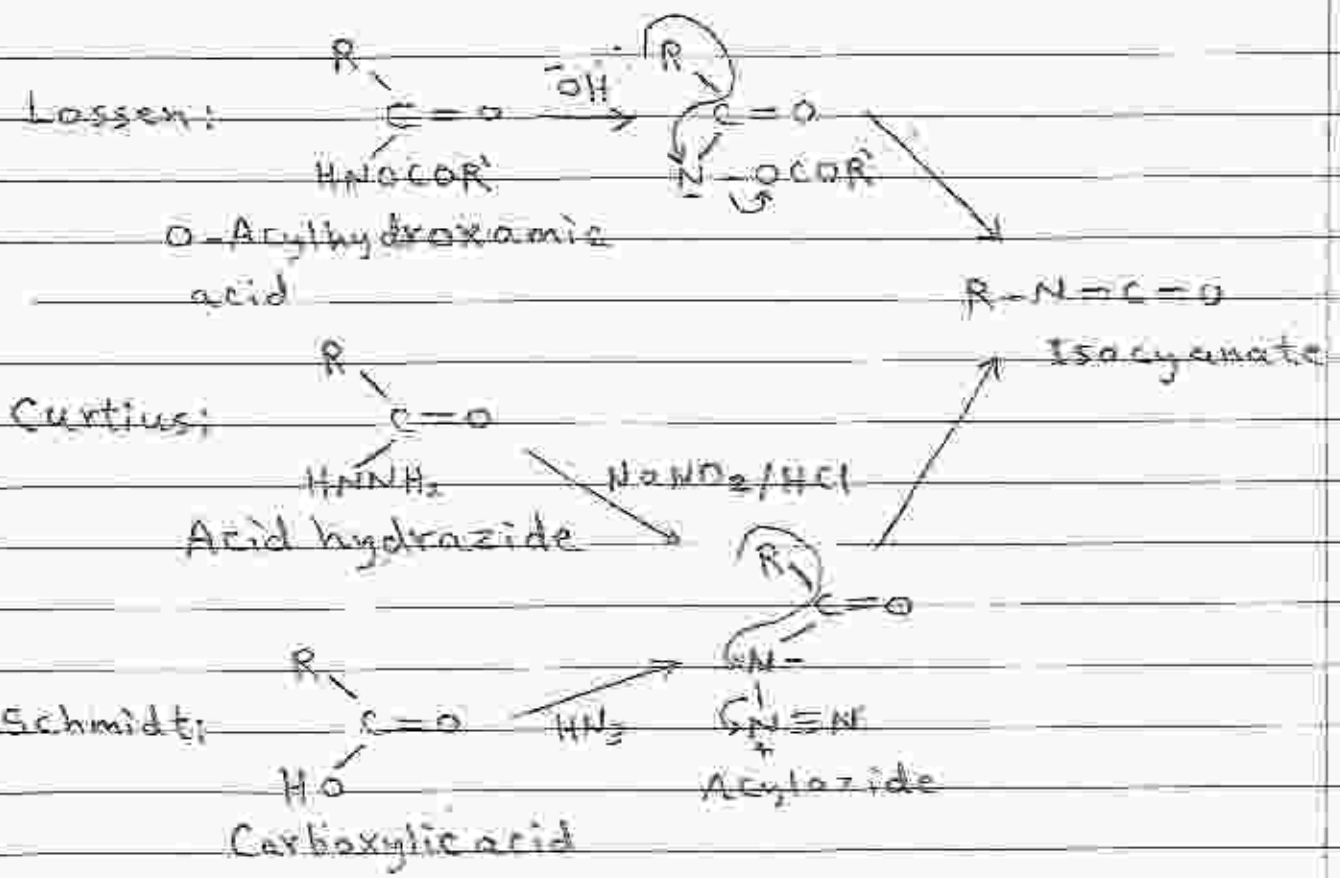 R
Lossen: C=O ⁻OH R C=O
HNOCOR' N-OCOR'
O-Acylhydroxamic
acid
R-N=C=O
Isocyanate
R
Curtius; C=O
HNNH₂ NaNO₂/HCl
Acid hydrazide
R
C=O
R N-
Schmidt; C=O HN₃ N≡N
+
HO Acylazide
Carboxylic acid